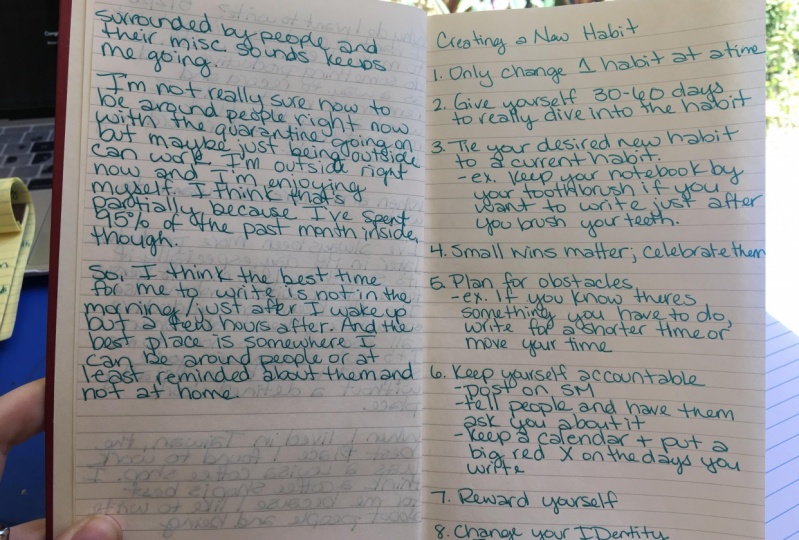 surrounded by people and
their misc sounds keeps
me going.
I'm not really sure how to
be around people right now
with the quarantine going on
but maybe just being outside
can work. I'm outside right
now and I'm enjoying
myself. I think that's
partially because I've spent
95% of the past month inside,
though.
So, I think the best time
for me to write is not in the
morning/just after I wake up
but a few hours after. And the
best place is somewhere I
can be around people or at
least reminded about them and
not at home.
Creating a New Habit
1. Only change 1 habit at a time
2. Give yourself 30-60 days
to really dive into the habit
3. Tie your desired new habit
to a current habit.
-ex. Keep your notebook by
your toothbrush if you
want to write just after
you brush your teeth.
4. Small wins matter; celebrate them
5. Plan for obstacles
-ex. If you know theres
something you have to do,
write for a shorter time or
move your time
6. Keep yourself accountable
-post on SM
-tell people and have them
ask you about it
-keep a calendar + put a
big red X on the days you
write
7. Reward yourself
8. Change your IDentity